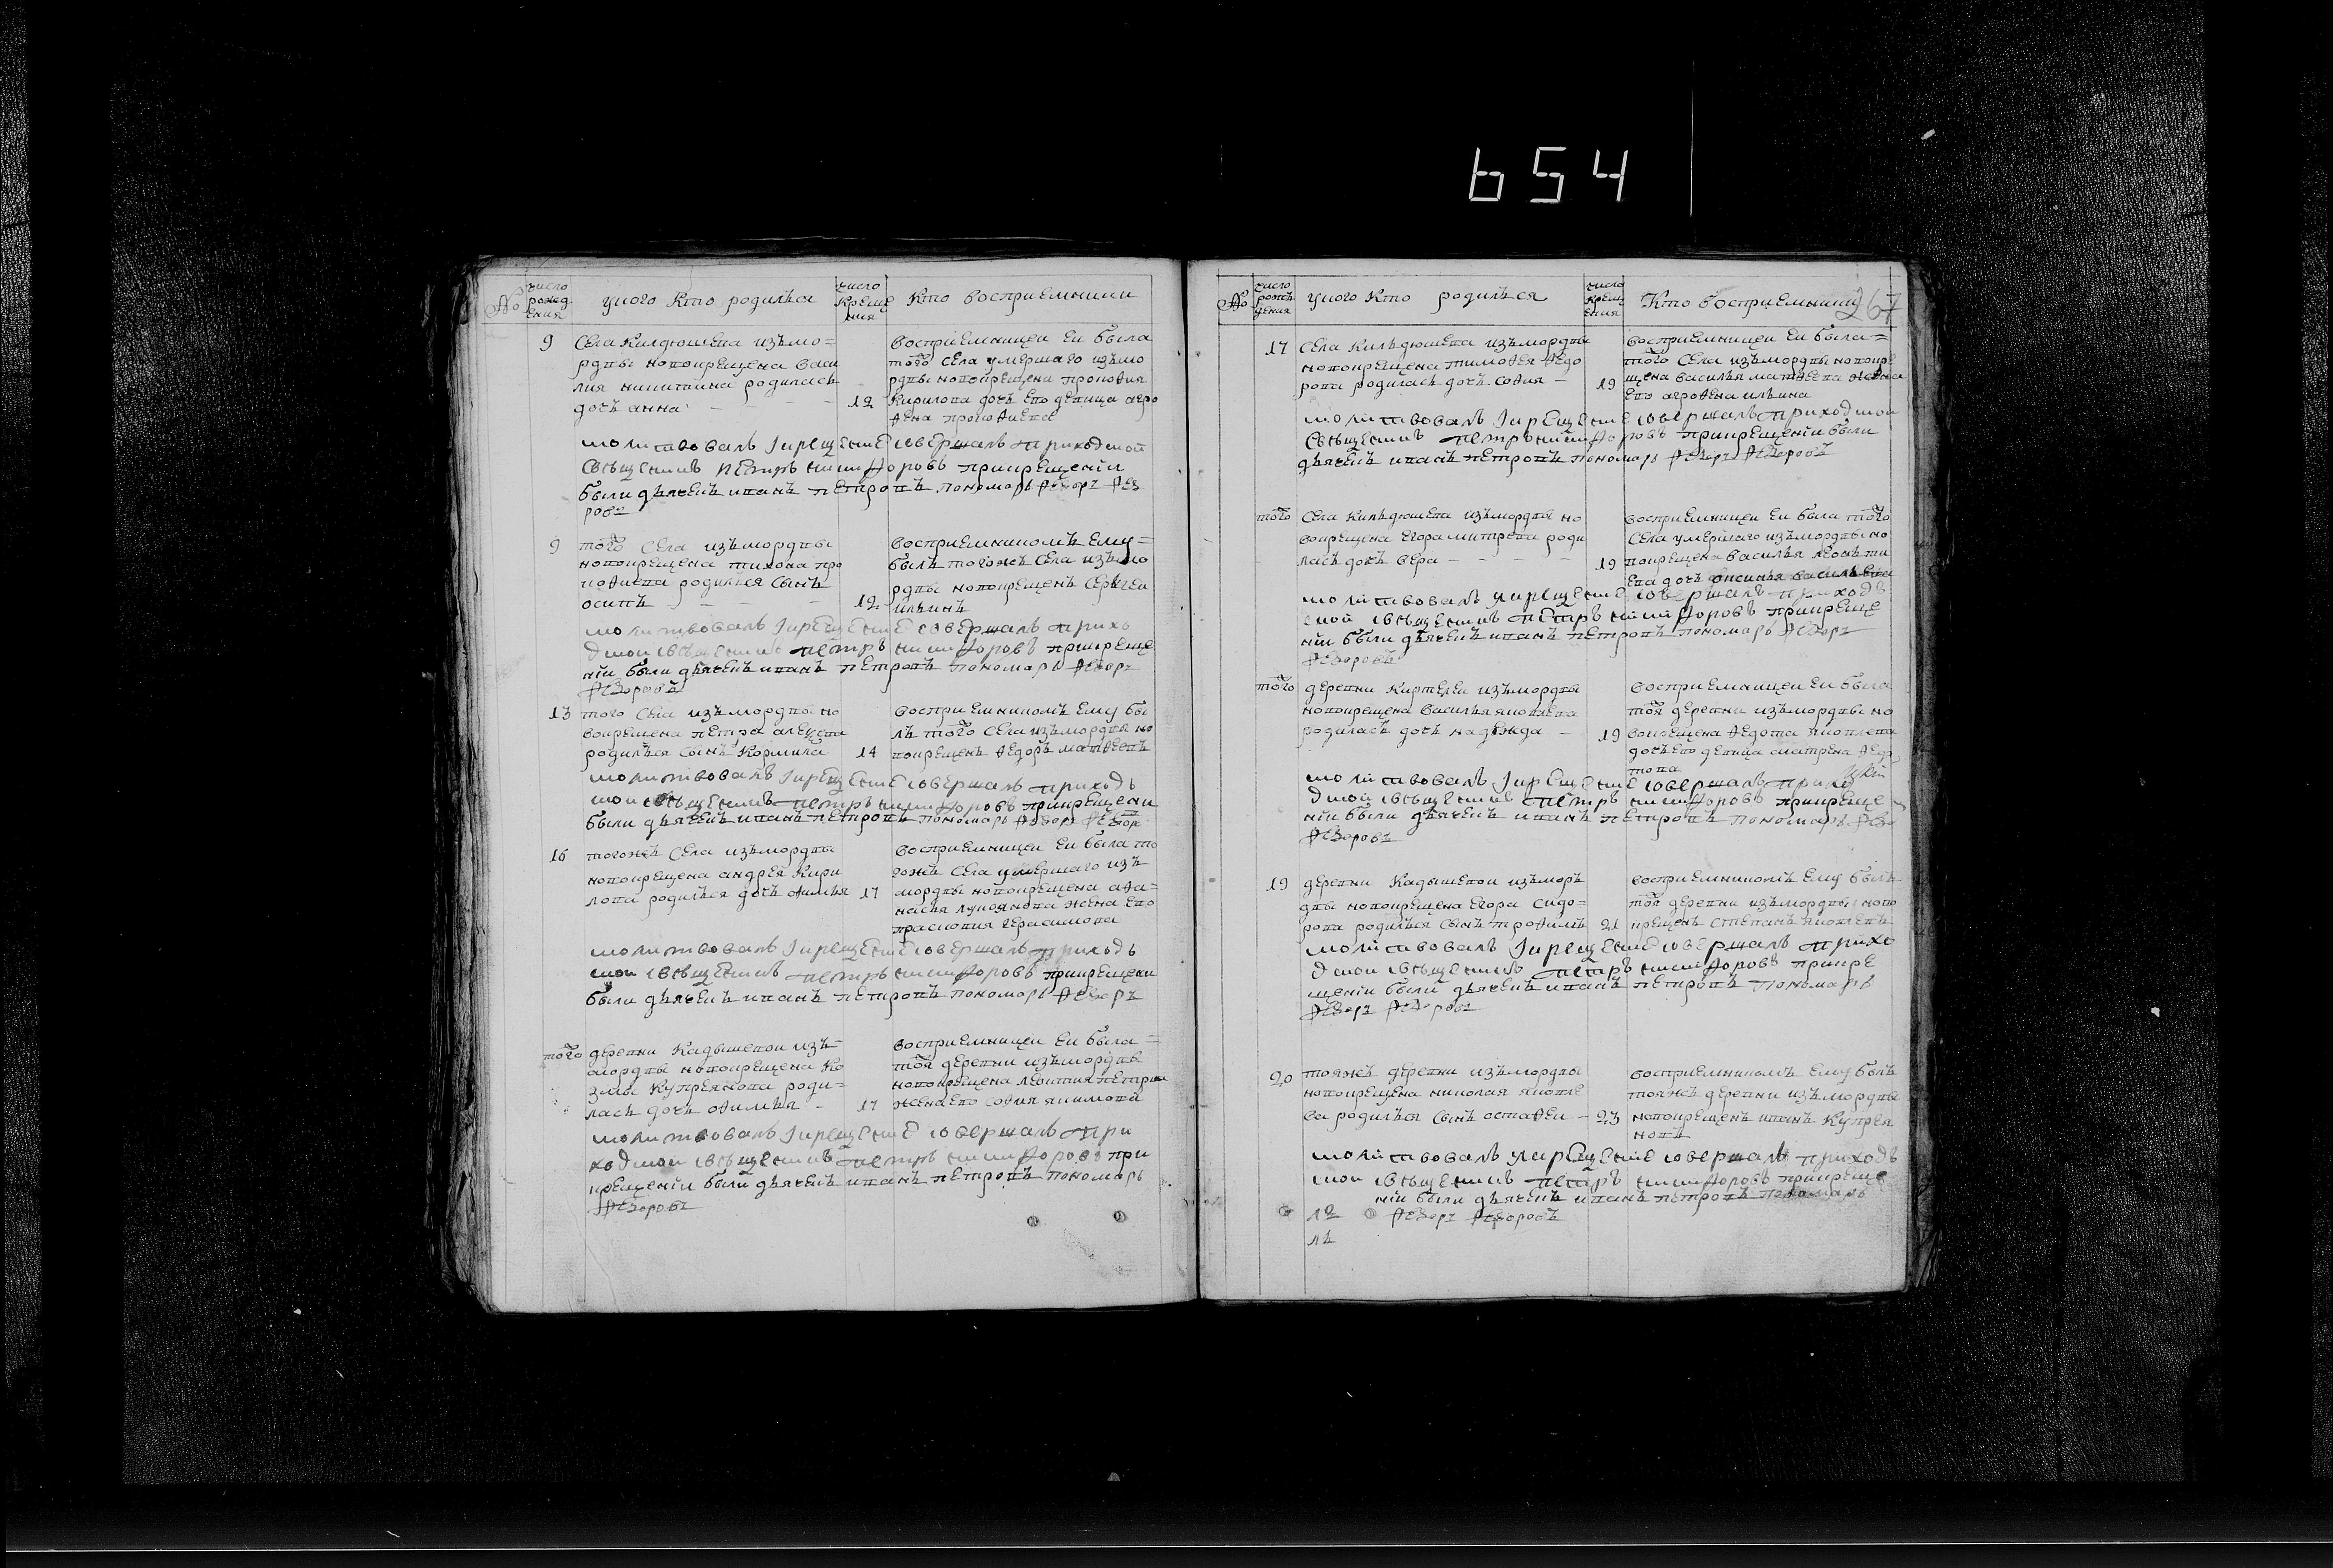 654
№
число
рожд
ения
у кого кто родился
число
креще
ния
Кто восприемники
9
села Килдюшева измо=
рдвы новокрещена васи
лия никитина родилась
дочь анна
12
восприемницеи еи была
того села умершаго измо
рдвы новокрещена прокофия
Кирилова дочь его девица агро
фена прокофиева
молитвовалъ Iкрещение совершалъ приходшои
священникъ петръ никифоровъ прикрещенiи
были дьячекъ иванъ петровъ пономарь федоръ фед
ровъ
9
того села измордвы
новокрещена тихона про
кофиева родился сынъ
осипъ
12
восприемникомъ ему=
былъ тогожъ села измо
рдвы новокрещенъ сергеи
ильинъ
молитвовалъ Iкрещение совершалъ прихо
дшои священникъ петръ никифоровъ прикреще
нiи были дьячекъ иванъ петровъ пономарь федоръ
федоровъ
13
того села измордвы но
вокрещена петра алексеева
родился сынъ Кормила
14
восприемникомъ ему бы
лъ того села измордвы но
вокрещенъ федоръ матвеевъ
молитвовалъ Iкрещение совершалъ приходъ
шои священникъ петръ никифоровъ прикрещени
были дьячекъ иванъ петровъ пономарь федоръ федор
16
тогожъ села измордвы
новокрещена андрея Кири
лова родился дочь афимья
17
восприемницеи еи была то
гожъ села умершаго изъ
мордвы новокрещена афа=
насья лукоянова жена его
прасковия герасимова
молитвовалъ Iкрещение совершалъ приходъ
шои священникъ петръ никифоровъ прикрещени
были дьячекъ иванъ петровъ пономарь федоръ
того
деревни Кадышевои изъ=
мордвы новокрещена Ко
змы Купреянова роди=
лась дочь офимья
17
восприемницеи еи была=
тоя деревни измордвы
новокрещена левития петрова
жена его софия якимова
молитвовалъ Iкрещение совершалъ при
ходшои священникъ петръ никифоровъ при
крещенiи были дьячекъ иванъ петровъ пономарь
федоровъ
№
число
рожъ
дения
у кого кто родился
число
крещ
ения
Кто восприемники
267
17
села Кильдюшева измордвы
новокрещена тимофея федо
рова родилась дочь софия
19
восприемницеи еи была=
того села измордвы новокре
щена василья матвеева жена
его агрофена ильина
молитвовалъ Iкрещение совершалъ приходшои
священникъ петръ никифоровъ прикрещенiи были
дьячекъ иванъ петровъ пономарь федоръ федоровъ
того
села Кильдюшева измордвы но
вокрещена егора митрева роди
лась дочь вера
19
восприемницеи еи была того
села умершаго измордвы но
вокрещена василья леонъти
ева дочь васильева
молитвовалъ Iкрещение совершалъ приходъ
шои священникъ петръ никифоровъ прикреще
нiи были дьячекъ иванъ петровъ пономарь федоръ
федоровъ
того
деревни Киртелеи измордвы
новокрещена василья яковлева
родилась дочь надежда
19
восприемницеи еи была
тоя деревни измордвы но
вокрещена федота яковлева
дочь его девица матрена федо
това
молитвовалъ Iкрещение совершалъ прихо
дшои священникъ петръ никифоровъ прикреще
нiи были дьячекъ иванъ петровъ пономарь
федоровъ
19
деревни Кадышевои изъмор
двы новокрещена егора сидо=
рова родился сынъ трофимъ
21
восприемникомъ ему былъ
тоя деревни измордвы ново
крещенъ степанъ яковлевъ
молитвовалъ Iкрещение совершалъ прихо
дшои священникъ петръ никифоровъ прикре
щенiи были дьячекъ иванъ петровъ пономарь
федоръ федоровъ
20
тояжъ деревни измордвы
новокрещена николая яковле
ва родился сынъ остафеи
23
восприемникомъ ему былъ
тояжъ деревни измордвы
новокрещенъ иванъ Купрея
новъ
молитвовалъ Iкрещение совершалъ приходъ
шои священникъ петръ никифоровъ прикреще
нiи были дьячекъ иванъ петровъ пономарь
12
федоръ федоровъ